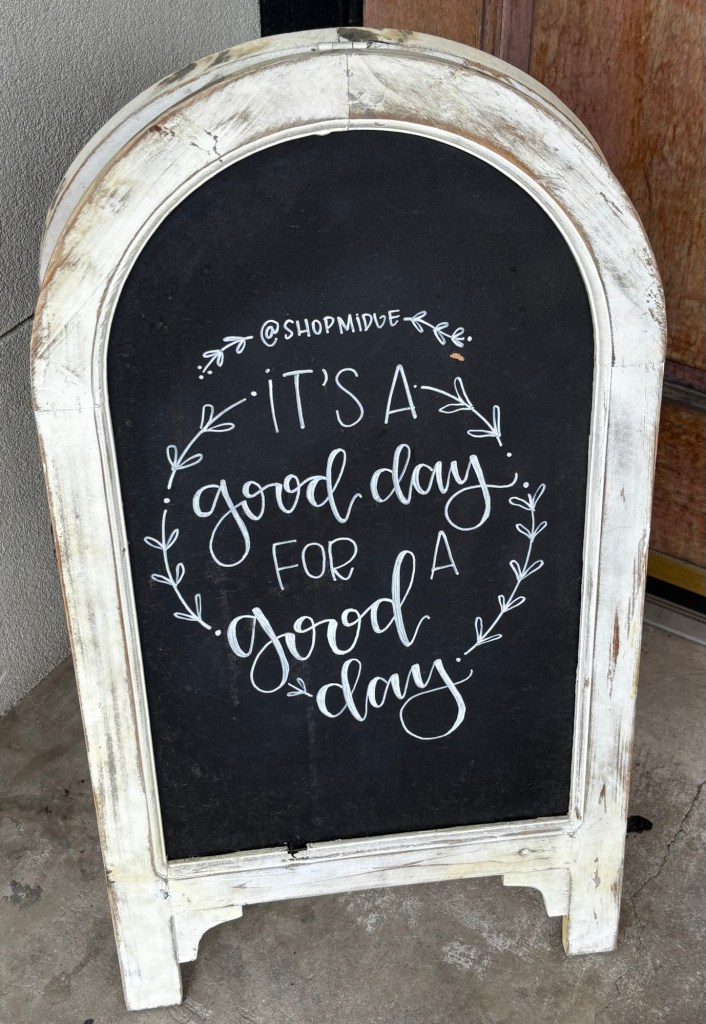 @SHOPMiDGE
iT'S A
good day
FOR A
good
day